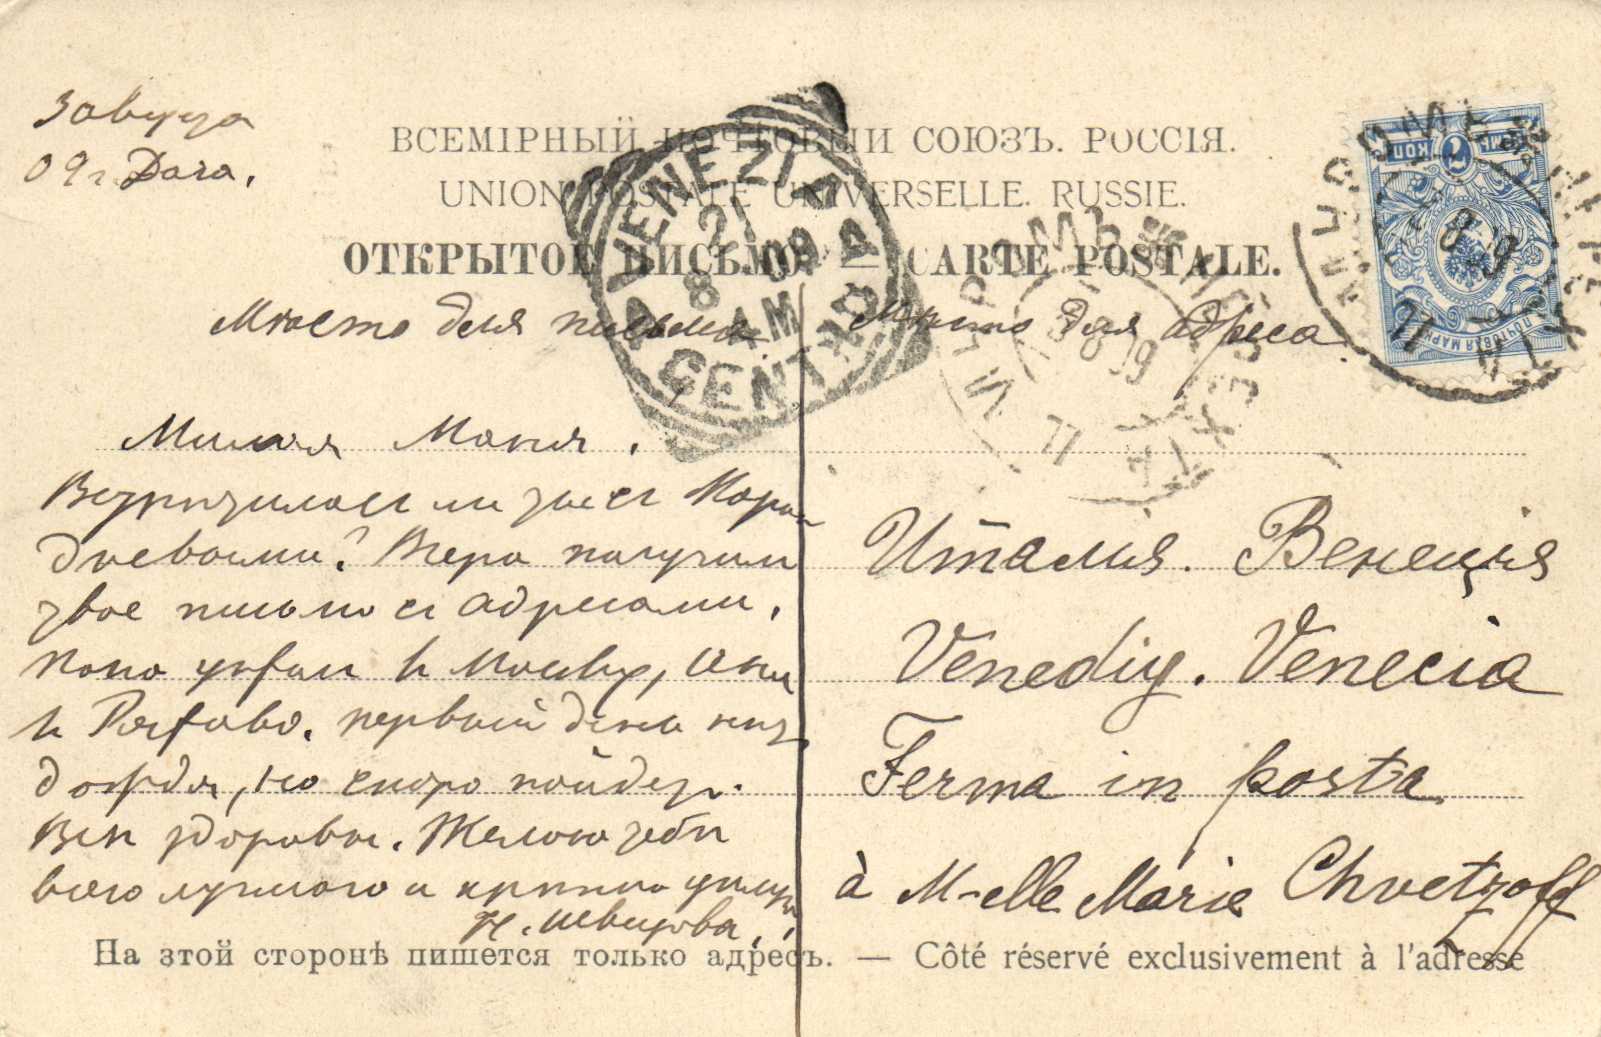 3 августа
09 г. Дача.
ВСЕМІРНЫЙ ПОЧТОВЫЙ СОЮЗЪ. РОССІЯ.
UNION POSTALE UNIVERSELLE. RUSSIE.
ОТКРЫТОЕ ПИСЬМО. — CARTE POSTALE.
Мѣсто для письма
Мѣсто для адреса.
VENEZIA
21
8 09
AM
CENTRO
7
КОП
ПОЧТОВАЯ МАРКА
Милая Маня.
Встрѣтилась ли ты съ
? Вчера получили
твое письмо съ адресами.
Папа уѣхал в Москву,
в первый день нѣт
дождя, но скоро пойдет.
Всѣ здоровы. Желаю тебѣ
всего лучшаго и крѣпко цѣлую
Н. Швецова.
Италия. Венеція
Venedig. Venecia
Ferma in posta
à M-elle Marie Chvetzoff
На этой сторонѣ пишется только адресъ. — Côté réservé exclusivement à l'adresse